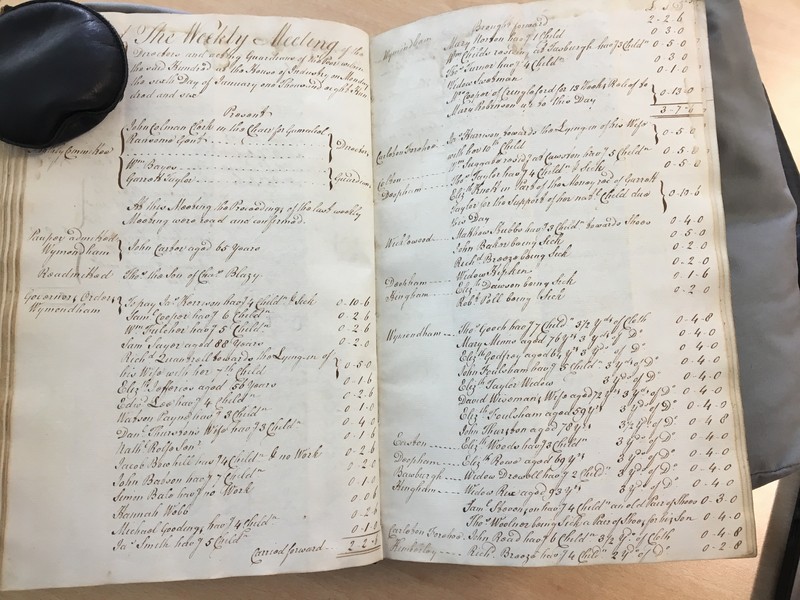 The Weekly Meeting of the
Directors and acting Guardians of the Poor within
the said Hundred at the House of Industry on Monday
the sixth Day of January one Thousand eight Hun
dred and six.
Present
John Colman Clerk in the Chair for Gamaliel
Ransome Gent
Directors
Weekly Committee
Wm Bayes
Garrett Taylor
Guardians
At this Meeting the Proceedings of the last weekly
Meeting were read and confirmed.
Pauper admitted
Wymondham
John Carter aged 65 Years
Readmitted Thos the Son of Chas Blazy.
Governors Orders
Wymondham
To pay Jas Harrison hav'g 4 Childn & Sick 0-10-6
Saml Cooper hav'g 6 Childn 0-2-6
Wm Fulcher hav'g 5 Childn 0-2-6
Saml Sayer aged 88 Years 0-2-0
Richd Quantrell towards the Lying-in of
his Wife with her 7th Child 0-5-0
Elizth Jefferies aged 58 Years 0-1-6
Edwd Lee hav'g 4 Childn 0-2-6
Watson Payne hav'g 3 Childn 0-1-0
Danl Thurston's Wife hav'g 3 Childn 0-4-0
Nathl Rolfe Senr 0-1-6
Jacob Bowhill hav'g 4 Childn & no Work 0-2-6
John Babson hav'g 7 Childn 0-2-0
Simm Bale hav'g no Work 0-1-0
Hannah Webb 0-0-6
Michael Gooding hav'g 4 Childn 0-2-6
Jas Smith hav'g 5 Childn 0-1-0
Carried forward 2-2-6
Brought forward 2-2-6
Wymondham Mary Norton hav'g 1 Child 0-3-0
Wm Childs resid'g at Tasburgh hav'g 3 Childn 0-5-0
Thos Turner hav'g 4 Childn 0-3-0
Widow Swotman 0-1-0
Mr Cooper of Cringleford for 13 Weeks Relief to
Mary Robinson to this Day 0-13-0
3-7-6
Carleton Forehoe Jas Harrison towards the Lying-in of his Wife
with her 10th Child 0-5-0
Colton Wm Juggabo resid'g at Cawston hav'g 5 Childn 0-5-0
Deopham Thos Taylor hav'g 4 Childn & Sick 0-5-0
Elizth Knott in Part of the Money reced of Garrett
Taylor for the Support of her natl Child due
this Day 0-10-6
Wicklewood Matthew Stubbs hav'g 3 Childn towards Shoes 0-4-0
John Baker being Sick 0-5-0
Richd Breeze being Sick 0-2-0
Deopham Widow Kipken 0-1-0
Hingham Elizth Dawson being Sick 0-1-6
Robt Poll being Sick 0-2-0
Wymondham Thos Gooch hav'g 7 Childn 3 1/2 Yds of Cloth 0-4-8
Mary Mimo aged 76 Yrs 3 Yds of Do 0-4-0
Elizth Godfrey aged 64 Yrs 3 Yds of Do 0-4-0
John Foulsham hav'g 5 Childn 3 Yds of Do 0-4-0
Elizth Taylor Widow 3 Yds of Do 0-4-0
David Wiseman's Wife aged 72 Yrs 3 Yds of Do 0-4-0
Elizth Foulsham aged 59 Yrs 3 Yds of Do 0-4-0
John Thurston aged 78 Yrs 3 1/2 Yds of Do 0-4-8
Easton Elizth Woods hav'g 3 Childn 3 Yds of Do 0-4-0
Deopham Elizth Rowe aged 69 Yrs 3 Yds of Do 0-4-0
Bawburgh Widow Drewell hav'g 2 Childn 3 Yds of Do 0-4-0
Hingham Widow Rix aged 73 Yrs 3 Yds of Do 0-4-0
Saml Stevenson hav'g 4 Childn an old Pair of Shoes 0-3-0
Thos Woolner being Sick a Pair of Shoes for his Son 0-4-0
Carleton Forehoe John Road hav'g 6 Childn 3 1/2 Yds of Cloth 0-4-8
Kimberley Richd Breeze hav'g 4 Childn 2 Yds of Do 0-2-8